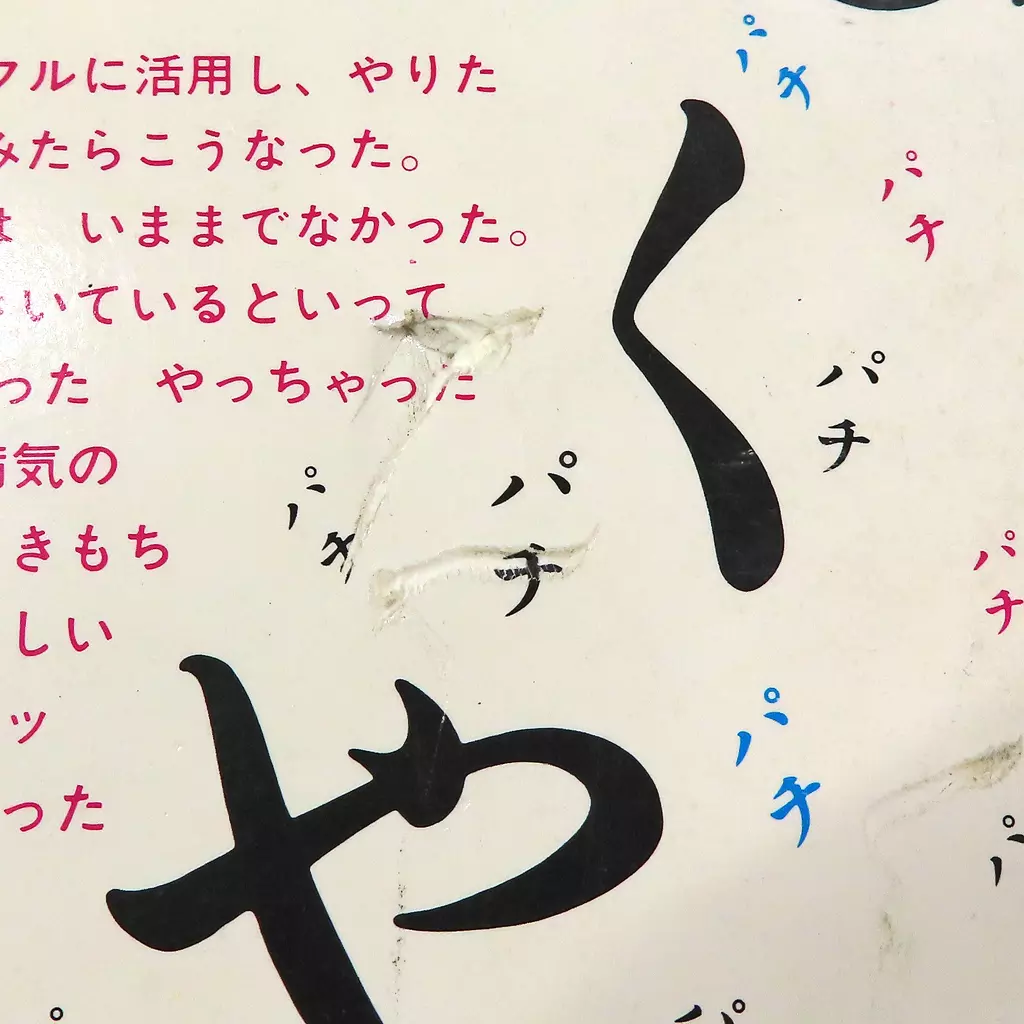 フルに活用し、やりた
みたらこうなった。
は　いままでなかった。
いているといって
った　やっちゃった
病気の
きもち
しい
ッ
った
く
や
パチ
パチ
パチ
パチ
パチ
パチ
パチ
パ
パ